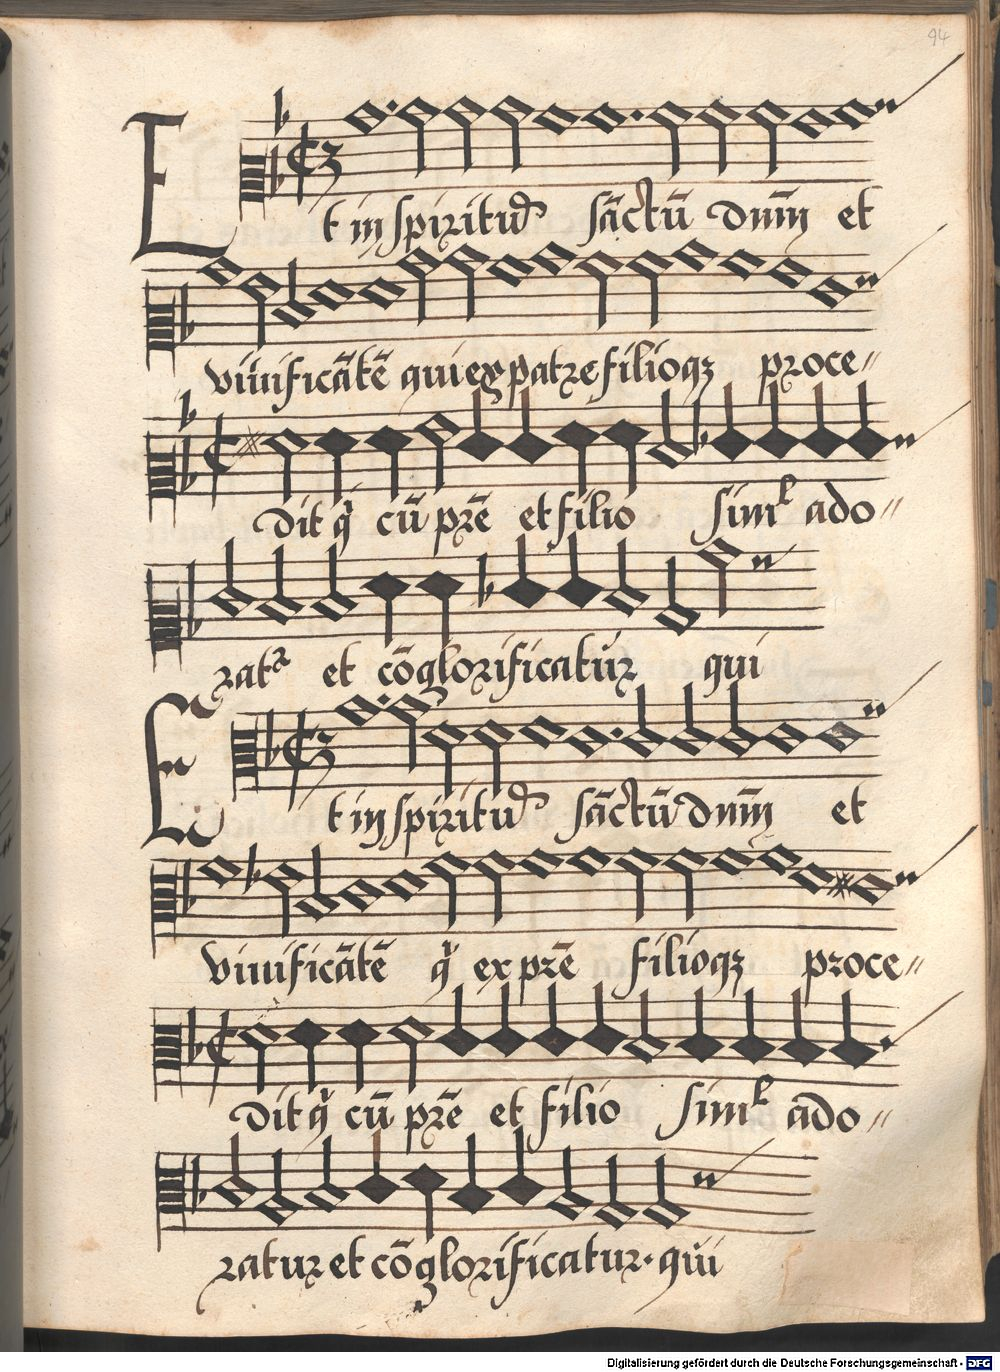 94
Et in spiritū sāctū dnm̄ et
vivificātē qui ex patre filioqz proce〃
dit q̇ cū prē et filio simˡ ado〃
ratᵃ et cōglorificatur qui
Et in spiritū sāctū dnm̄ et
vivificātē q̇ ex prē filioqz proce〃
dit q̇ cū prē et filio simˡ ado〃
ratur et cōglorificatur · qui
Digitalisierung gefördert durch die Deutsche Forschungsgemeinschaft - DFG